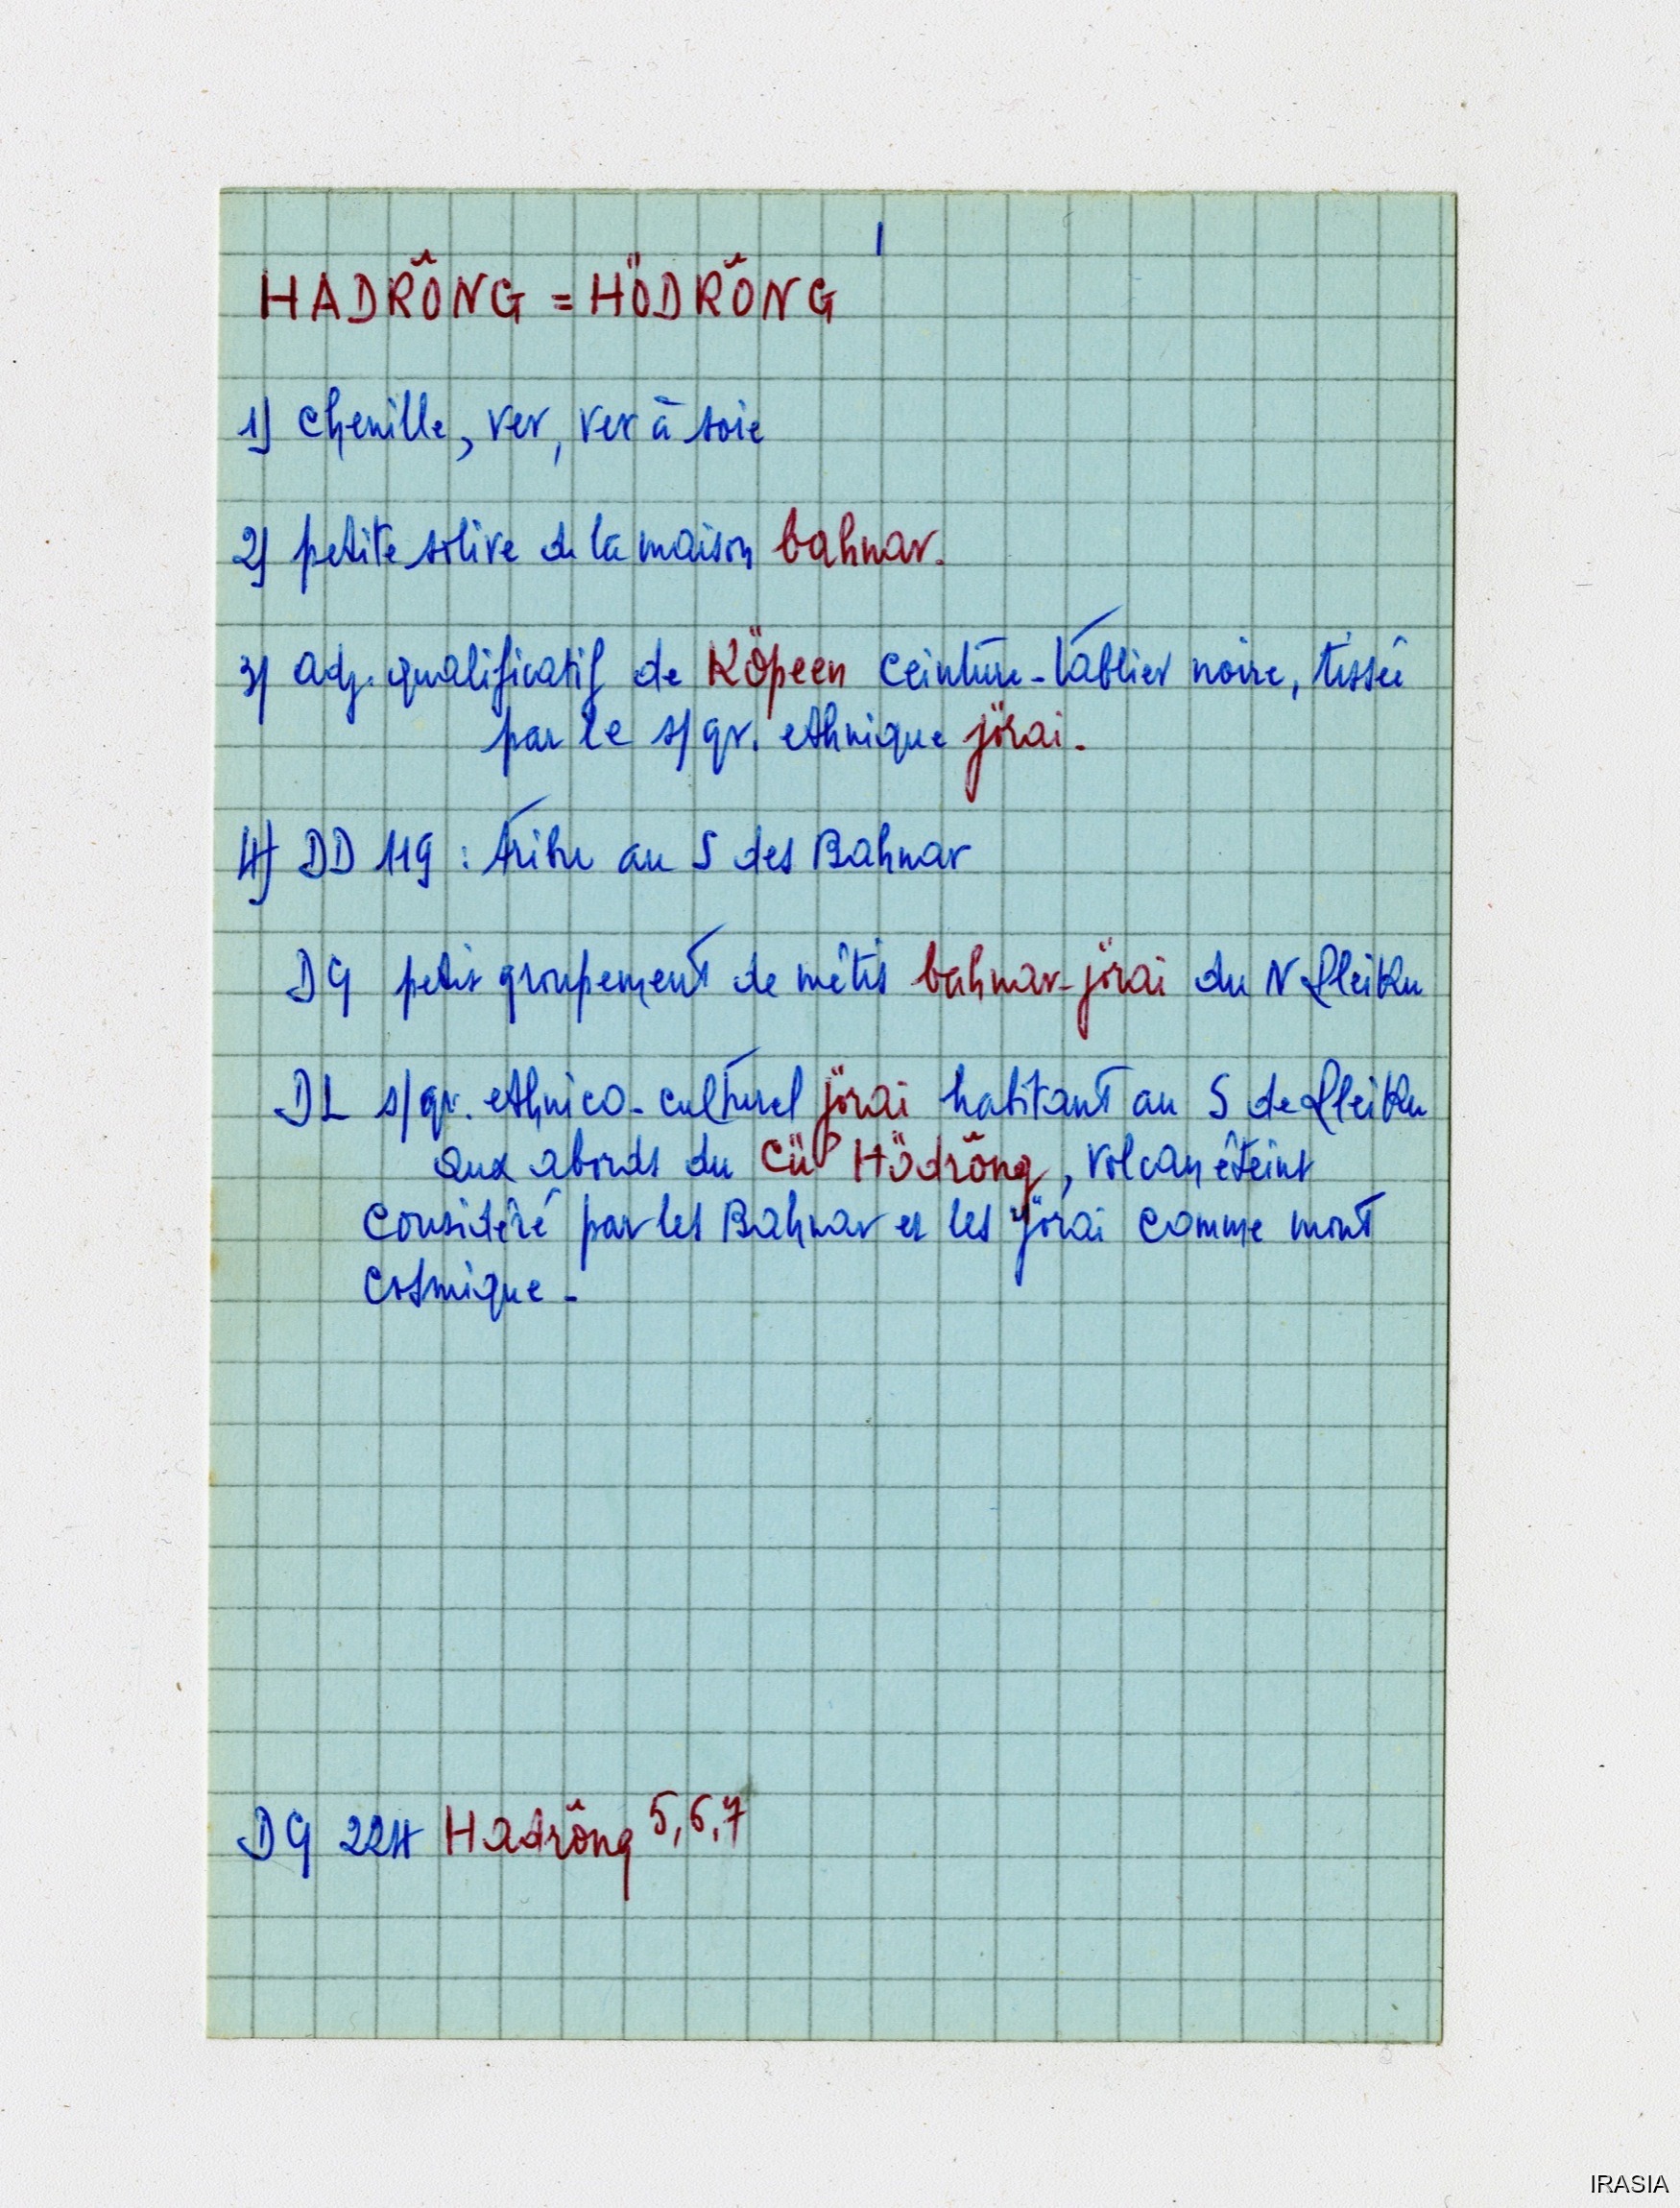 1
HADRÔNG = HÖDRÔNG
1) chenille, ver, ver à soie
2) petite solive de la maison bahnar.
3) adj. qualificatif de Köpeen ceinture-tablier noire, tissée
par le s/gr. ethnique jörai.
4) DD 119 : tribu au S des Bahnar
DG petit groupement de métis bahnar-jörai du N Pleiku
DL s/gr. ethnico-culturel jörai habitant au S de Pleiku
aux abords du Cü Hödrông, volcan éteint
considéré par les Bahnar et les jörai comme mont
cosmique.
DG 224 Hadrông 5,6,7
IRASIA